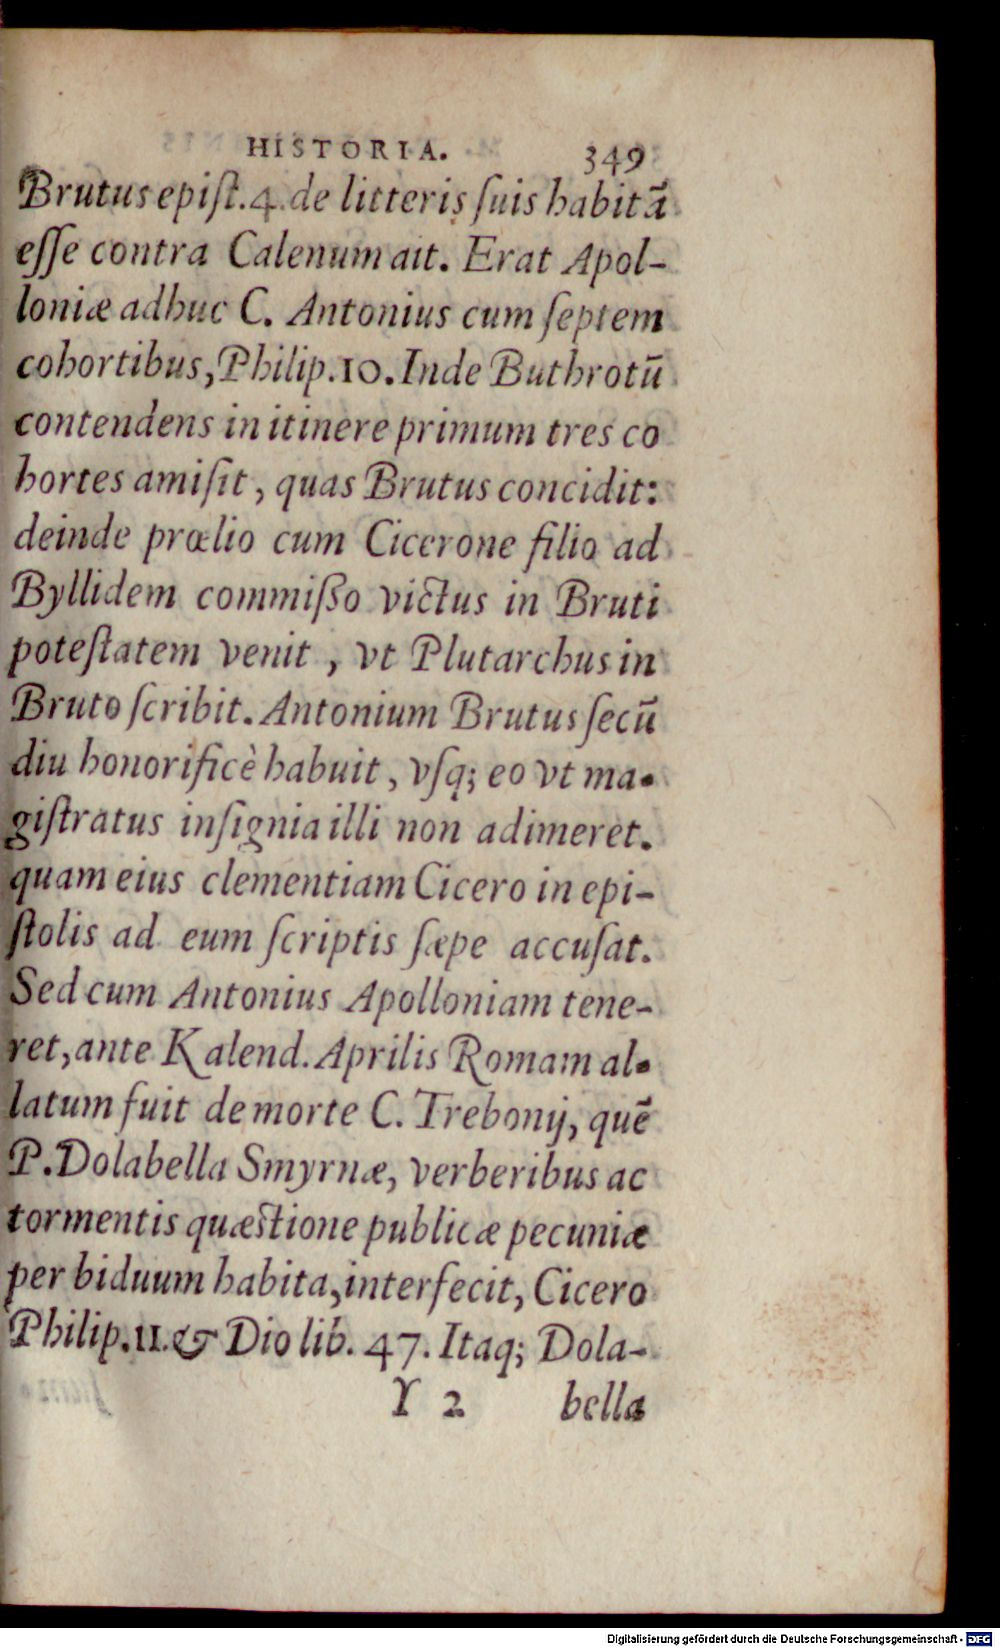 HISTORIA. 349
Brutus epiſt. 4. de litteris ſuis habitā
eſſe contra Calenum ait. Erat Apol-
loniæ adhuc C. Antonius cum ſeptem
cohortibus, Philip. 10. Inde Buthrotū
contendens in itinere primum tres co
hortes amiſit, quas Brutus concidit:
deinde prœlio cum Cicerone filio ad
Byllidem commiſſo victus in Bruti
poteſtatem venit, vt Plutarchus in
Bruto ſcribit. Antonium Brutus ſecū
diu honorificè habuit, vſq; eo vt ma-
giſtratus inſignia illi non adimeret.
quam eius clementiam Cicero in epi-
ſtolis ad eum ſcriptis ſæpe accuſat.
Sed cum Antonius Apolloniam tene-
ret, ante Kalend. Aprilis Romam al-
latum fuit de morte C. Trebonij, quē
P. Dolabella Smyrnæ, verberibus ac
tormentis quæſtione publicæ pecuniæ
per biduum habita, interfecit, Cicero
Philip. 11. & Dio lib. 47. Itaq; Dola-
Y 2 bella
Digitalisierung gefördert durch die Deutsche Forschungsgemeinschaft - DFG